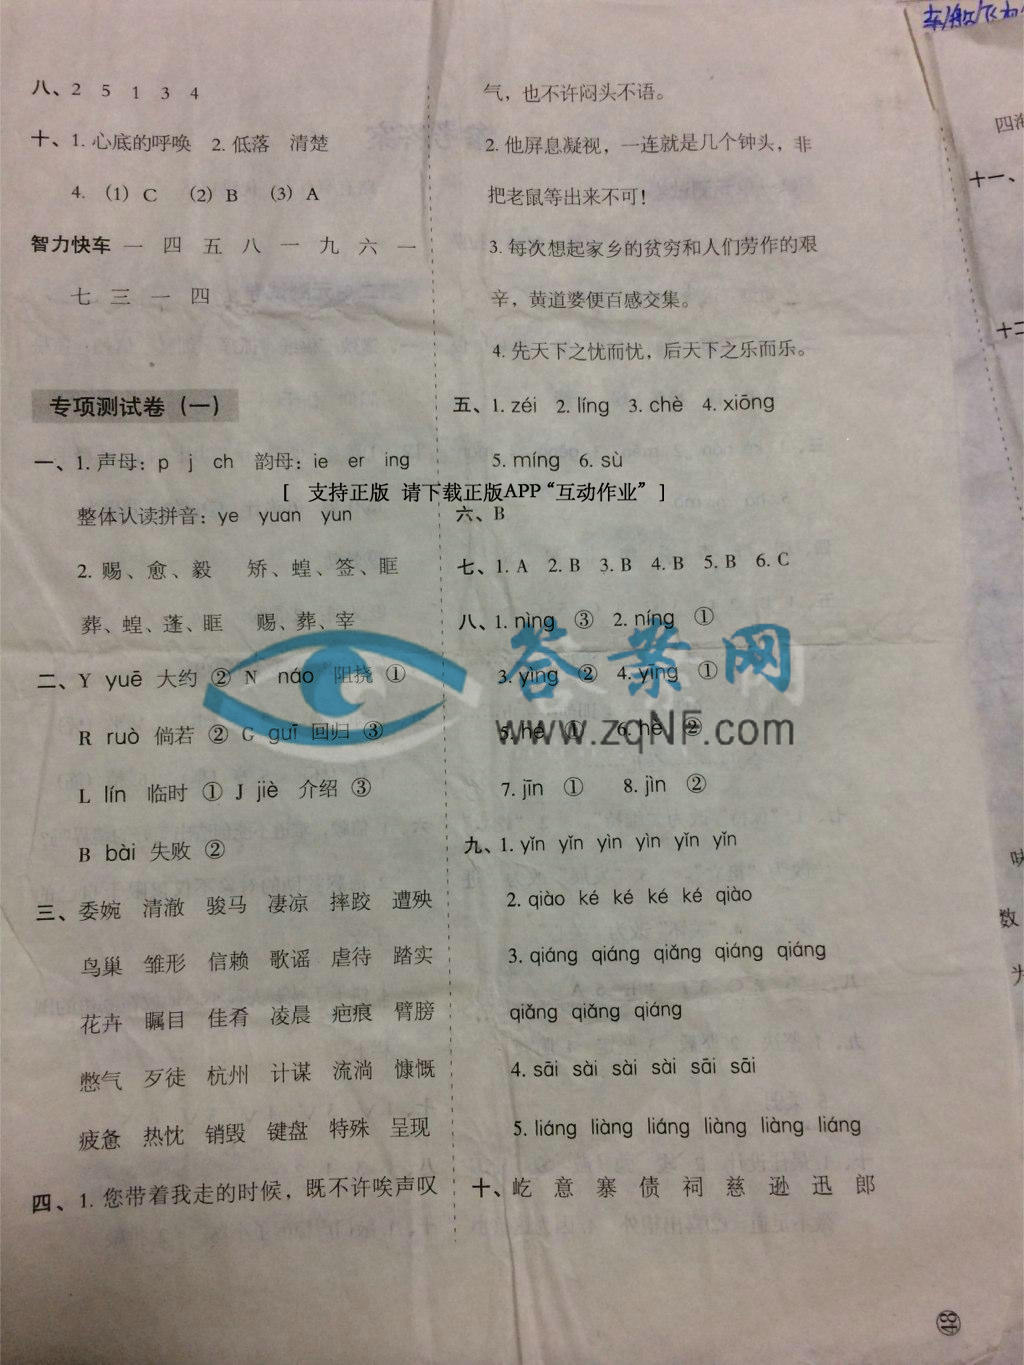 八、2 5 1 3 4
十、1. 心底的呼唤 2. 低落 清楚
4. (1) C (2) B (3) A
智力快车 一 四 五 八 一 九 六 一
七 三 一 四
专项测试卷(一)
一、1. 声母：p j ch 韵母：ie er ing
整体认读拼音：ye yuan yun
2. 赐、愈、毅 矫、蝗、签、眶
葬、蝗、蓬、眶 赐、葬、宰
二、Y yuē 大约 ② N náo 阻挠 ①
R ruò 倘若 ② G guī 回归 ③
L lín 临时 ① J jiè 介绍 ③
B bài 失败 ②
三、委婉 清澈 骏马 凄凉 摔跤 遭殃
鸟巢 雏形 信赖 歌谣 虐待 踏实
花卉 瞩目 佳肴 凌晨 疤痕 臂膀
憋气 歹徒 杭州 计谋 流淌 慷慨
疲惫 热忱 销毁 键盘 特殊 呈现
四、1. 您带着我走的时候，既不许唉声叹
气，也不许闷头不语。
2. 他屏息凝视，一连就是几个钟头，非
把老鼠等出来不可！
3. 每次想起家乡的贫穷和人们劳作的艰
辛，黄道婆便百感交集。
4. 先天下之忧而忧，后天下之乐而乐。
五、1. zéi 2. líng 3. chè 4. xiōng
5. míng 6. sù
[ 支持正版 请下载正版APP“互动作业” ]
六、B
七、1. A 2. B 3. B 4. B 5. B 6. C
八、1. nìng ③ 2. níng ①
3. yìng ② 4. yīng ①
5. hé ① 6. hè ②
7. jīn ① 8. jìn ②
九、1. yǐn yǐn yìn yìn yǐn yǐn
2. qiào ké ké ké ké qiào
3. qiáng qiáng qiǎng qiáng qiáng
qiǎng qiǎng qiáng
4. sāi sài sài sài sāi sāi
5. liáng liàng liáng liàng liàng liáng
十、屹 意 寨 债 祠 慈 逊 迅 郎
答案网
www.zqNF.com
四海
十一、
十二
味
数
为
48